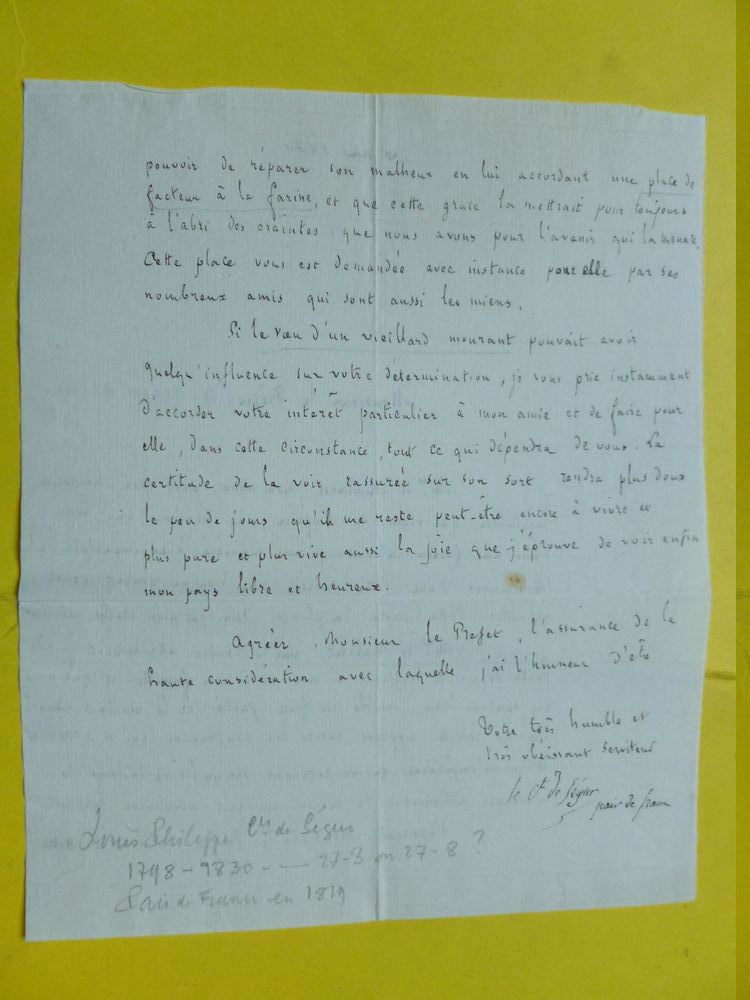 pouvoir de réparer son malheur en lui accordant une place de
facteur à la farine, et que cette grace la mettrait pour toujours
à l'abri des craintes que nous avons pour l'avenir qui la menace.
Cette place vous est demandée avec instance pour elle par ses
nombreux amis qui sont aussi les miens.
Si le vœu d'un vieillard mourant pouvait avoir
quelqu'influence sur votre détermination, je vous prie instamment
d'accorder votre intérêt particulier à mon amie et de faire pour
elle, dans cette circonstance, tout ce qui dépendra de vous. La
certitude de la voir rassurée sur son sort rendra plus doux
le peu de jours qu'il me reste peut-être encore à vivre et
plus pure et plus vive aussi la joie que j'éprouve de voir enfin
mon pays libre et heureux.
Agréer, Monsieur le Prefet, l'assurance de la
haute considération avec laquelle j'ai l'honneur d'être
Votre très humble et
très obéissant serviteur
le Ct de Ségur
pair de france
Louis Philippe Cte de Ségur
1798 - 1830 - 27-3 ou 27-8 ?
Pair de France en 1819